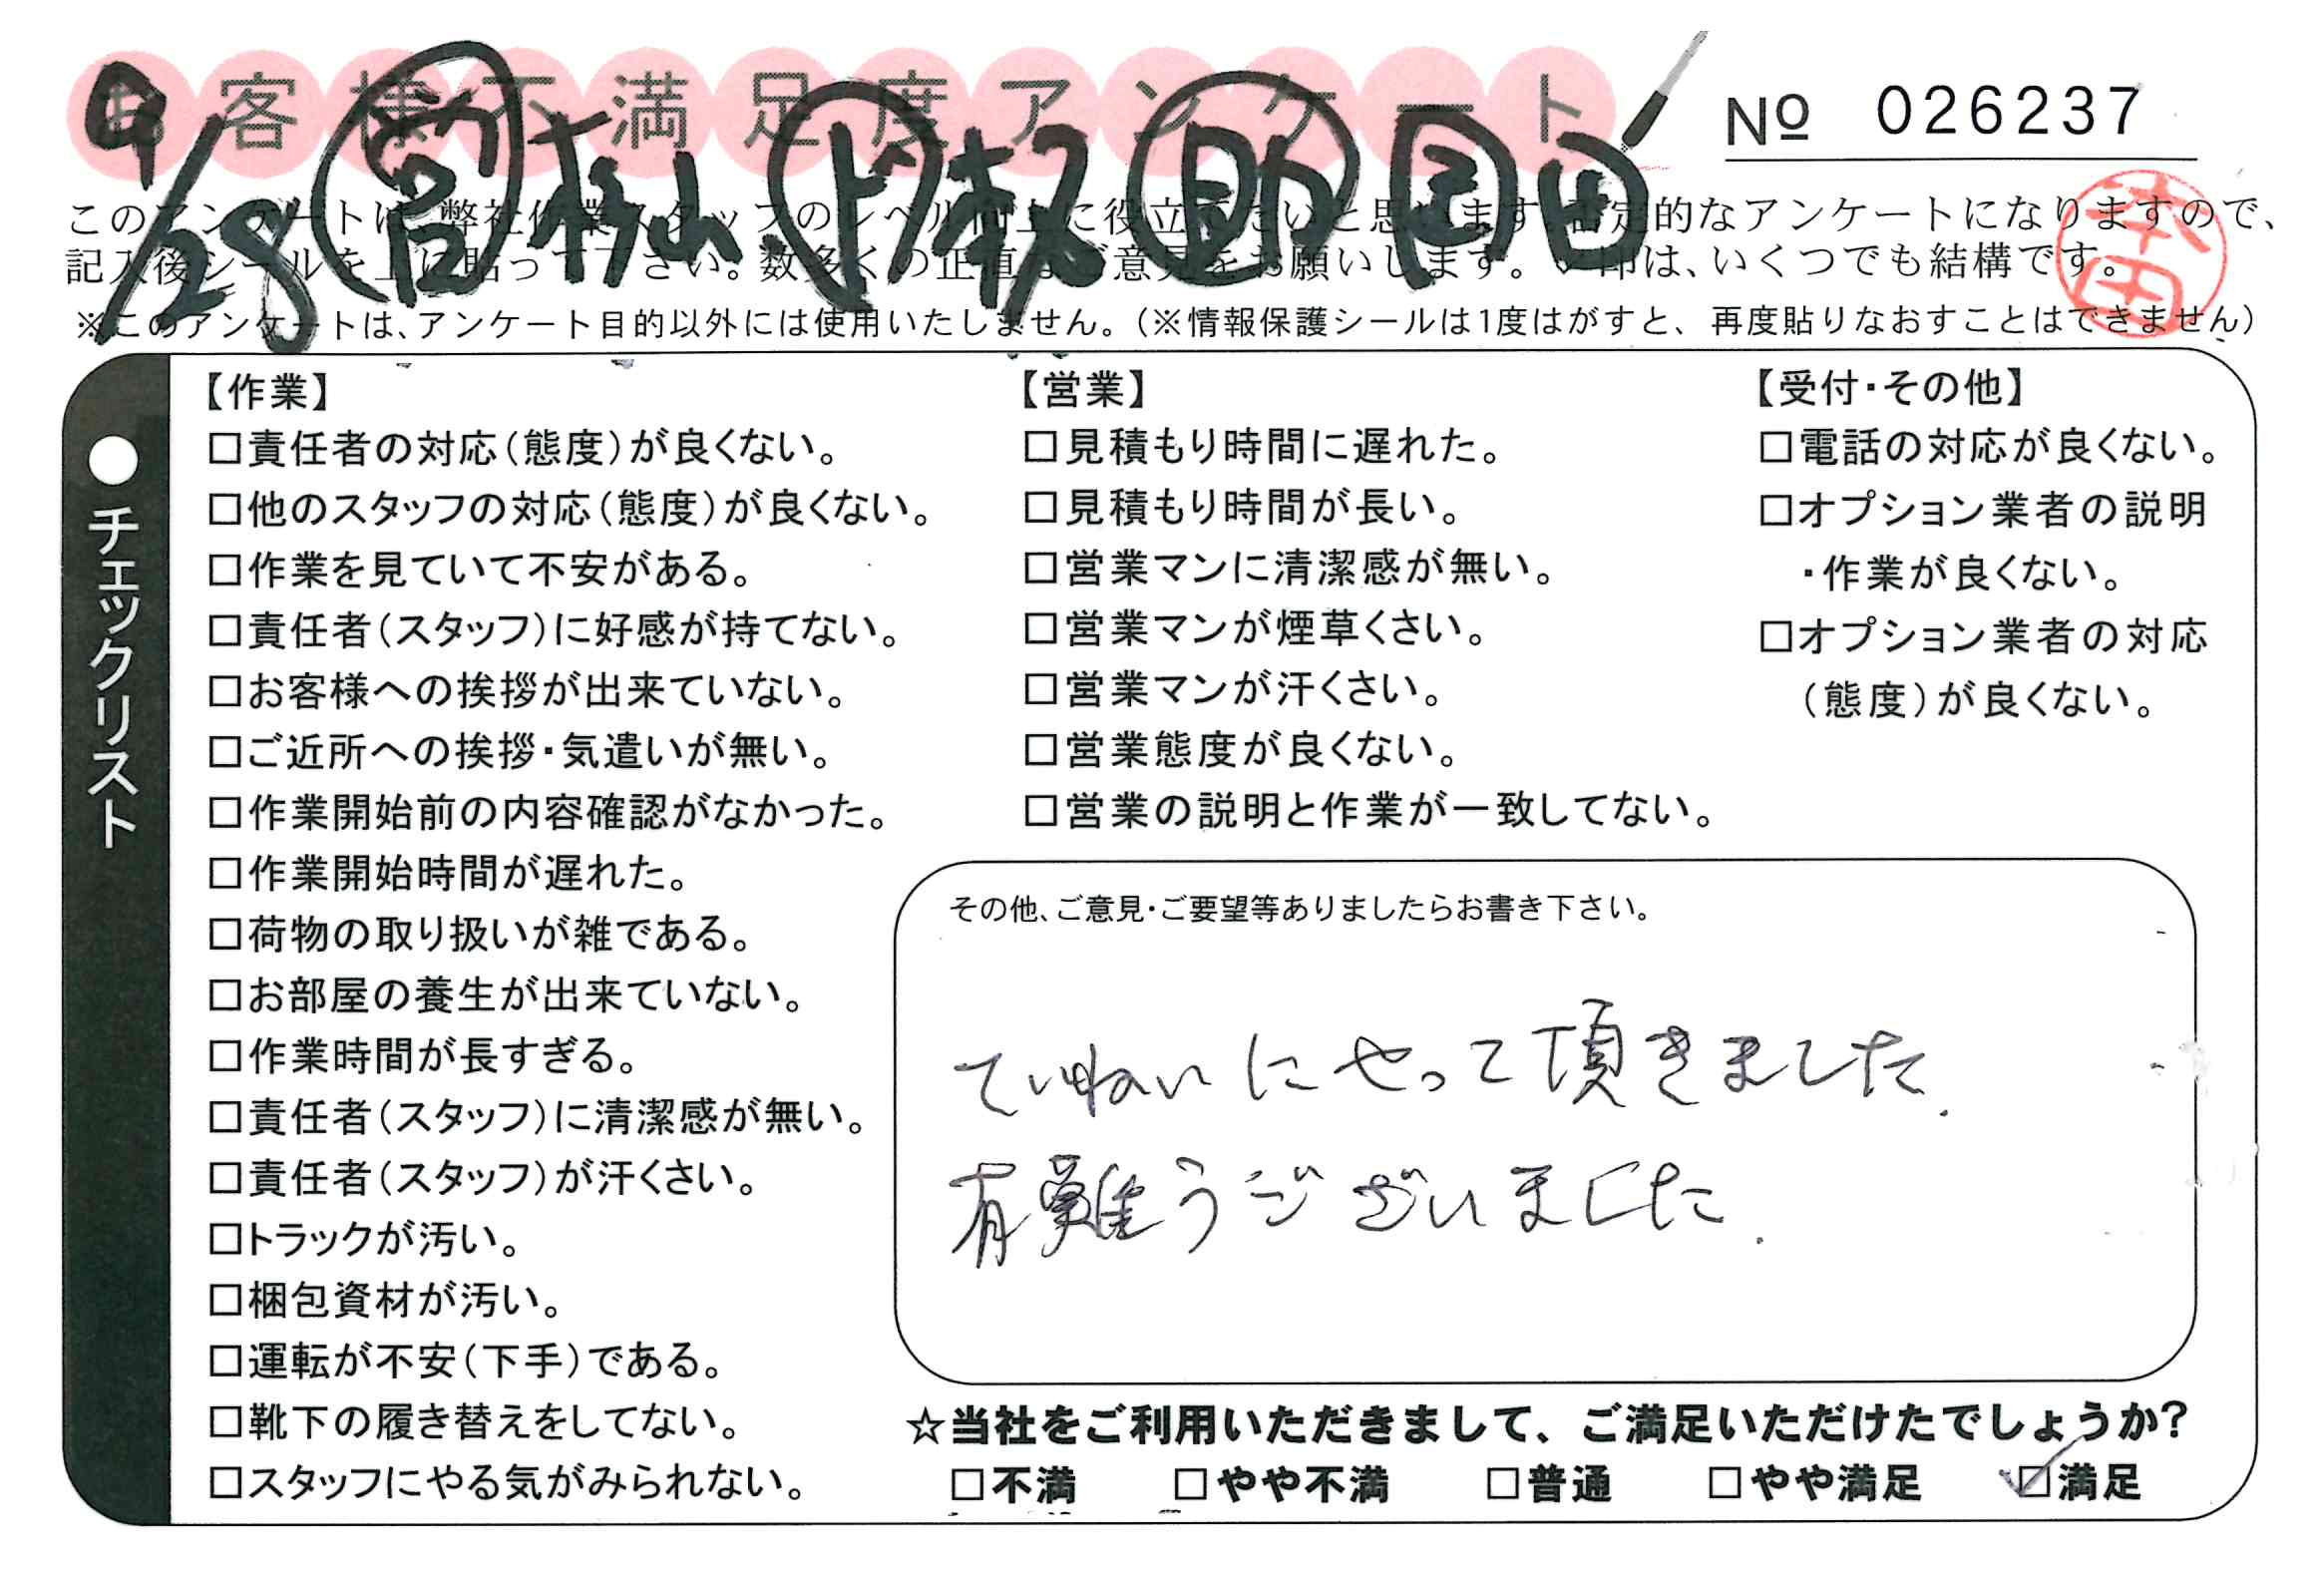 お客様不満足度アンケート
№ 026237
9/28 杉山 上 松 助 岡田
本田
このアンケートは、弊社作業スタッフのレベル向上に役立てたいと思います。否定的なアンケートになりますので、
記入後シールを上に貼って下さい。数多くの正直なご意見をお願いします。✓印は、いくつでも結構です。
※このアンケートは、アンケート目的以外には使用いたしません。（※情報保護シールは1度はがすと、再度貼りなおすことはできません）
●チェックリスト
【作業】
□責任者の対応（態度）が良くない。
□他のスタッフの対応（態度）が良くない。
□作業を見ていて不安がある。
□責任者（スタッフ）に好感が持てない。
□お客様への挨拶が出来ていない。
□ご近所への挨拶・気遣いが無い。
□作業開始前の内容確認がなかった。
□作業開始時間が遅れた。
□荷物の取り扱いが雑である。
□お部屋の養生が出来ていない。
□作業時間が長すぎる。
□責任者（スタッフ）に清潔感が無い。
□責任者（スタッフ）が汗くさい。
□トラックが汚い。
□梱包資材が汚い。
□運転が不安（下手）である。
□靴下の履き替えをしてない。
□スタッフにやる気がみられない。
【営業】
□見積もり時間に遅れた。
□見積もり時間が長い。
□営業マンに清潔感が無い。
□営業マンが煙草くさい。
□営業マンが汗くさい。
□営業態度が良くない。
□営業の説明と作業が一致してない。
【受付・その他】
□電話の対応が良くない。
□オプション業者の説明
・作業が良くない。
□オプション業者の対応
（態度）が良くない。
その他、ご意見・ご要望等ありましたらお書き下さい。
ていねいにやって頂きました.
有難うございました.
☆当社をご利用いただきまして、ご満足いただけたでしょうか?
□不満 □やや不満 □普通 □やや満足 ☑満足